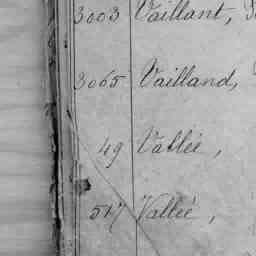 3003 Vaillant,
3065 Vailland,
49 Vallée,
517 Vallée,